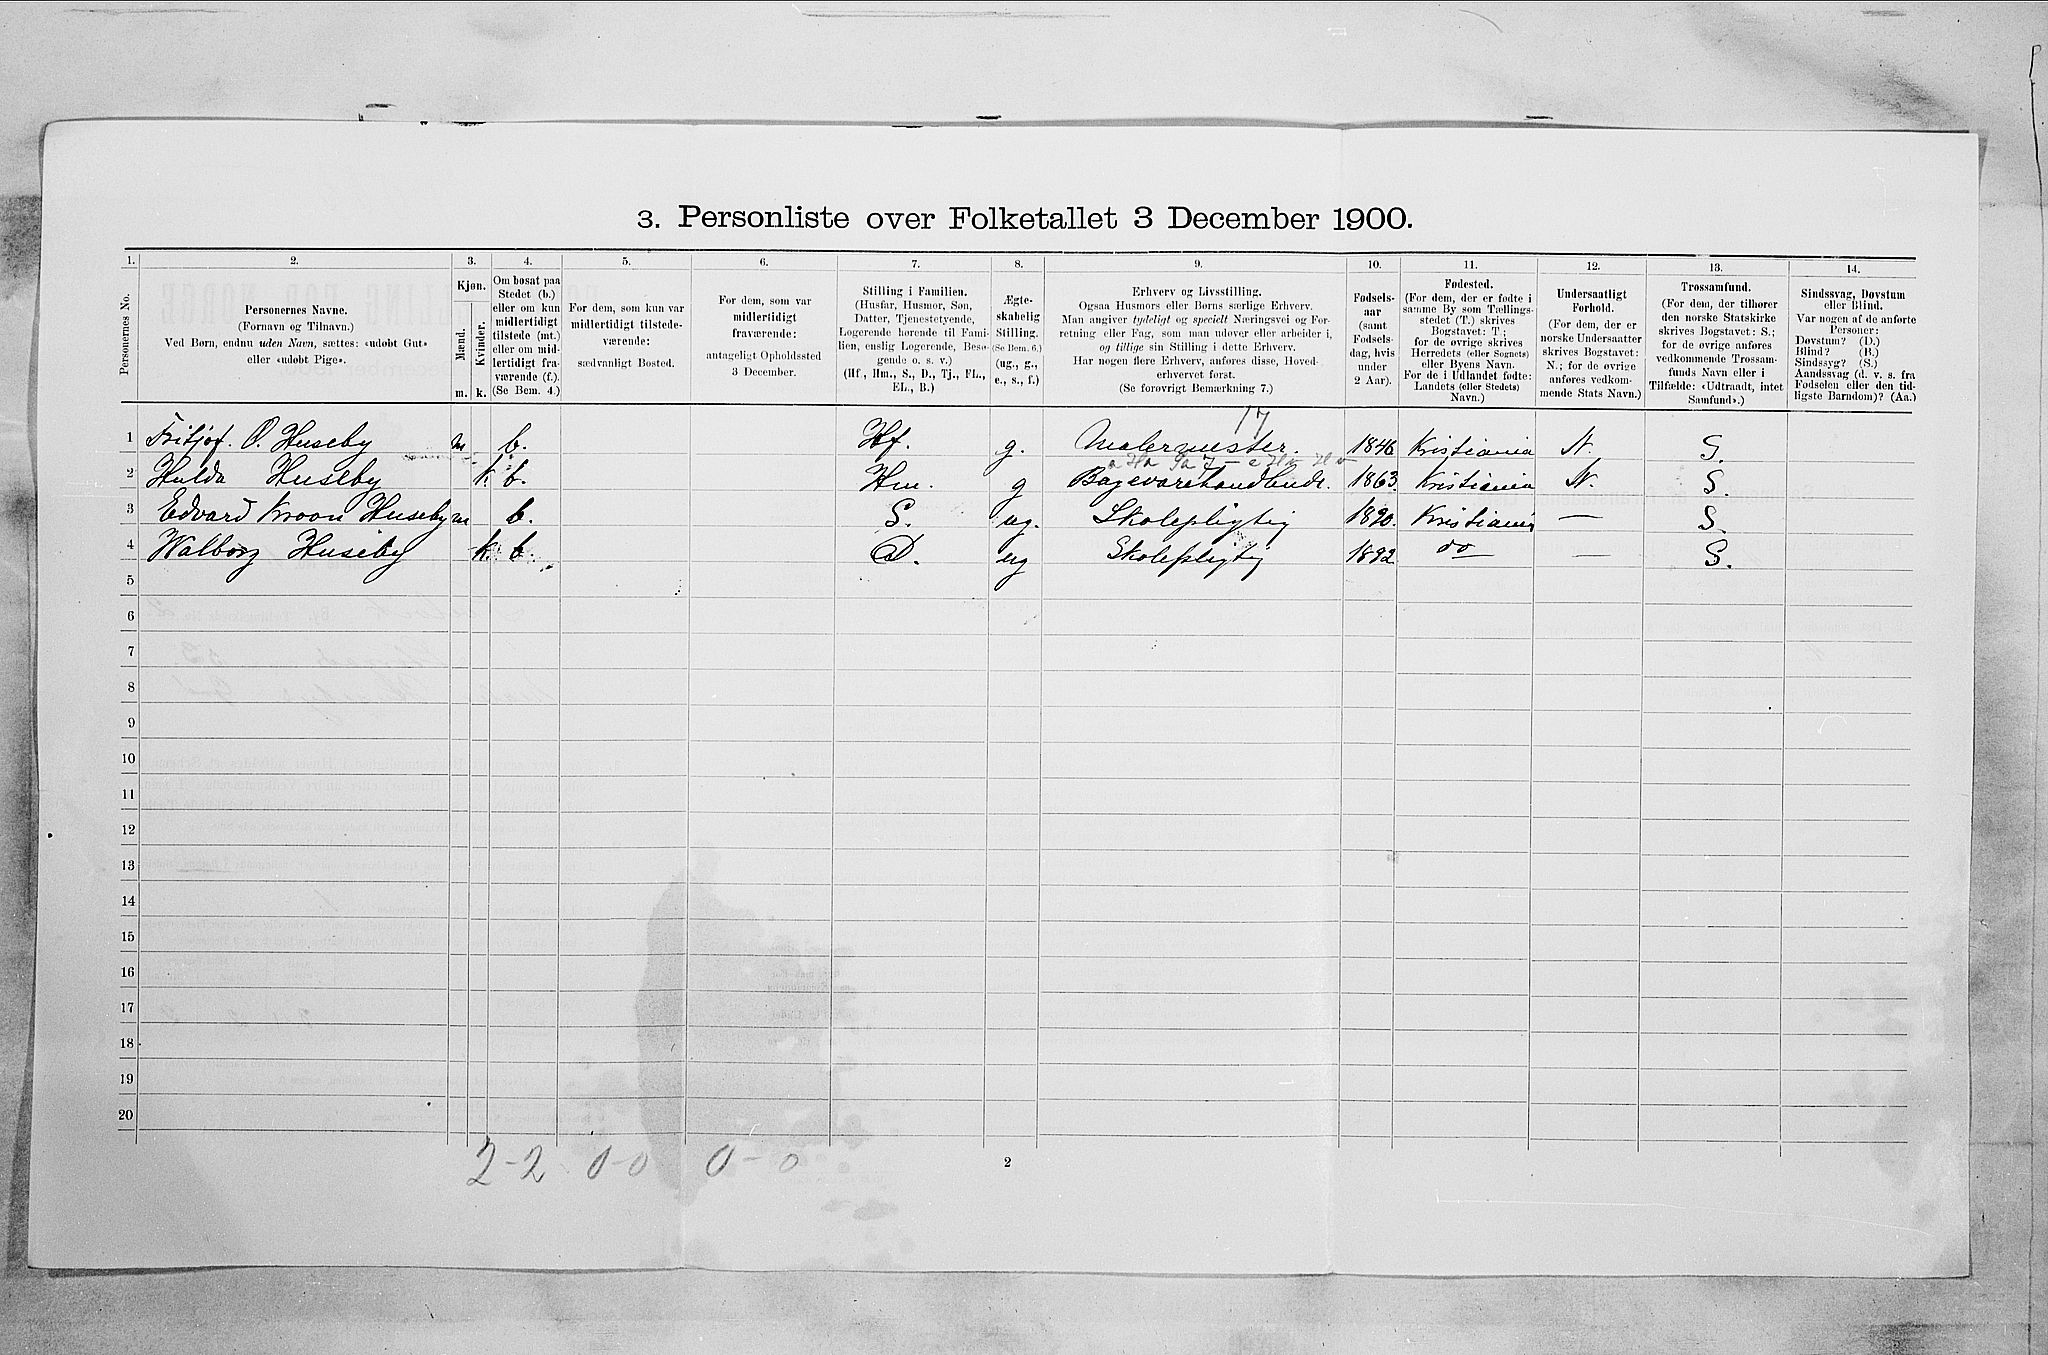 3. Personliste over Folketallet 3 December 1900.
1. 2. 3. 4. 5. 6. 7. 8. 9. 10. 11. 12. 13. 14.
Personernes No.
Personernes Navne.
(Fornavn og Tilnavn.)
Ved Børn, endnu uden Navn, sættes: «udøbt Gut»
eller «udøbt Pige».
Kjøn.
Mænd.
Kvinder.
m. k.
Om bosat paa
Stedet (b.)
eller om kun
midlertidigt
tilstede (mt.)
eller om mid-
lertidigt fra-
værende (f.).
(Se Bem. 4.)
For dem, som kun var
midlertidigt tilstede-
værende:
sædvanligt Bosted.
For dem, som var
midlertidigt
fraværende:
antageligt Opholdssted
3 December.
Stilling i Familien.
(Husfar, Husmor, Søn,
Datter, Tjenestetyende,
Logerende hørende til Fami-
lien, enslig Logerende, Besø-
gende o. s. v.)
(Hf., Hm., S., D., Tj., FL.,
EL., B.)
Ægte-
skabelig
Stilling.
(Se Bem. 6.)
(ug., g.,
e., s., f.)
Erhverv og Livsstilling.
Ogsaa Husmors eller Børns særlige Erhverv.
Man angiver tydeligt og specielt Næringsvei og For-
retning eller Fag, som man udøver eller arbeider i,
og tillige sin Stilling i dette Erhverv.
Har nogen flere Erhverv, anføres disse, Hoved-
erhvervet først.
(Se forøvrigt Bemærkning 7.)
Fødsels-
aar
(samt
Fødsels-
dag, hvis
under
2 Aar).
Fødested.
(For dem, der er fødte i
samme By som Tællings-
stedet (T.) skrives
Bogstavet: T;
for de øvrige skrives
Herredets (eller Sognets)
eller Byens Navn.
For de i Udlandet fødte:
Landets (eller Stedets)
Navn.)
Undersaatligt
Forhold.
(For dem, der er
norske Undersaatter
skrives Bogstavet:
N.; for de øvrige
anføres vedkom-
mende Stats Navn.)
Trossamfund.
(For dem, der tilhører
den norske Statskirke
skrives Bogstavet: S.;
for de øvrige anføres
vedkommende Trossam-
funds Navn eller i
Tilfælde: «Udtraadt, intet
Samfund».)
Sindssvag, Døvstum
eller Blind.
Var nogen af de anførte
Personer:
Døvstum? (D.)
Blind? (B.)
Sindssyg? (S.)
Aandssvag (d. v. s. fra
Fødselen eller den tid-
ligste Barndom)? (Aa.)
17
1 Fritjof. O. Huseby m b. Hf. g. Malermester. 1846 Kristiania N. S.
2 Hulda Huseby k b. Hm. g Bagevarehandlende. 1863. Kristiania N. S.
3 Edvard Kroon Huseby m b. S. ug. Skolepligtig 1890. Kristiania — S.
4 Walborg Huseby k. b. D. ug Skolepligtig 1892 do — S.
5
6
7
8
9
10
11
12
13
14
15
16
17
18
19
20
2-2 0-0 0-0
2